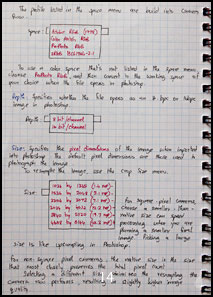 The profiles listed in the space menu are built into Camera
Raw.
Space:
Adobe RGB (1998)
Color Match RGB
ProPhoto RGB
sRGB IEC61966-2.1
To use a color space that's not listed in the space menu
choose ProPhoto RGB, and then convert to the working space of
your choice when the file opens in photoshop.
Depth: Specifies whether the file opens as an 8 bpc or 16bpc
image in photoshop
Depth:
8 bit/channel
16 bit/channel
Size: Specifies the pixel dimensions of the image when imported
into photoshop. The default pixel dimensions are those used to
photograph the image.
To resample the image, use the Crop Size menu.
Size:
1536 by
2048 by
For square-pixel cameras,
choose a smaller than
native size can speed
processing when you are
planning a smaller final
image. Picking a larger
size is like upsampling in Photoshop.
For non square pixel cameras, the native size is the size
that most closely preserves the total pixel count.
Selecting a different size minimizes the resampling the
camera raw performs, resulting in slightly higher image
quality